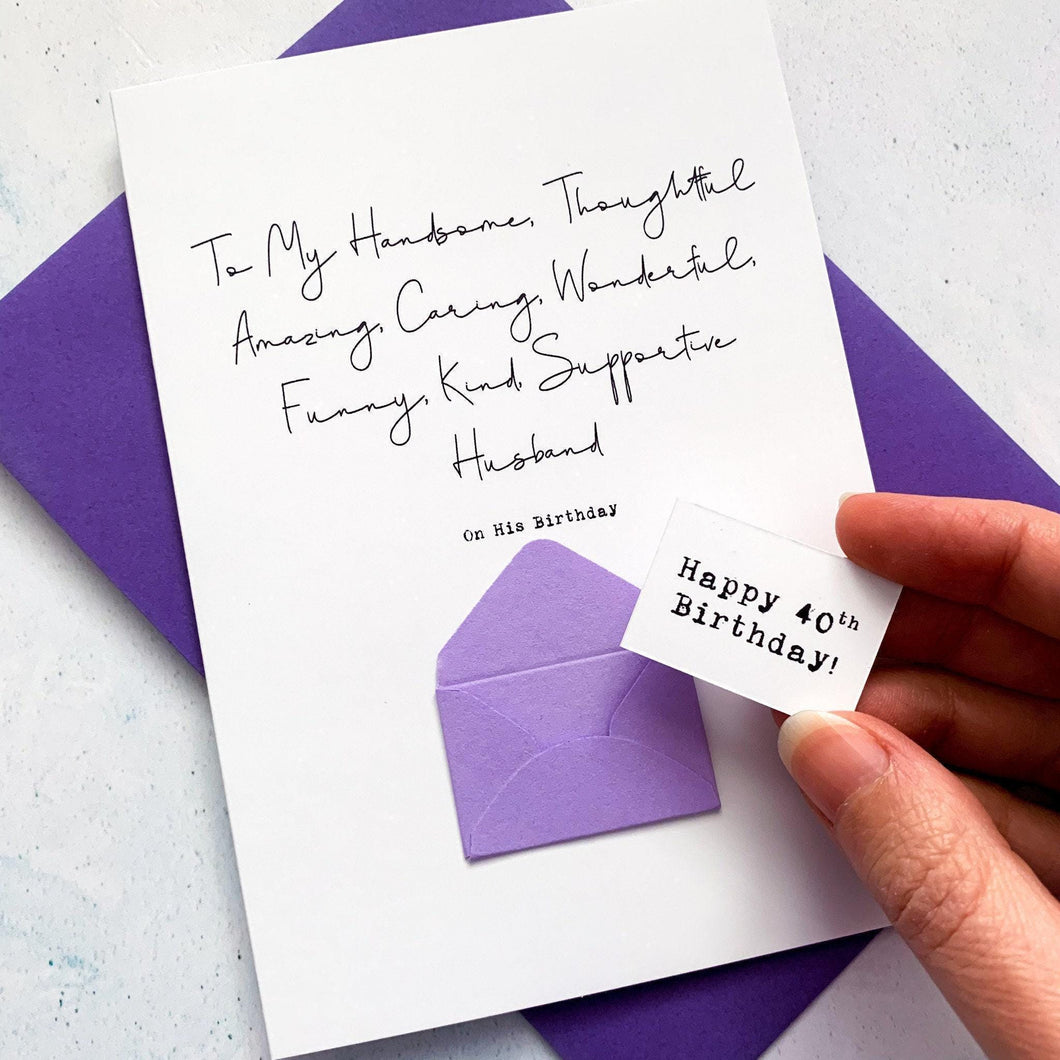 To My Handsome, Thoughtful
Amazing, Caring, Wonderful,
Funny, Kind, Supportive
Husband
On His Birthday
Happy 40th
Birthday!